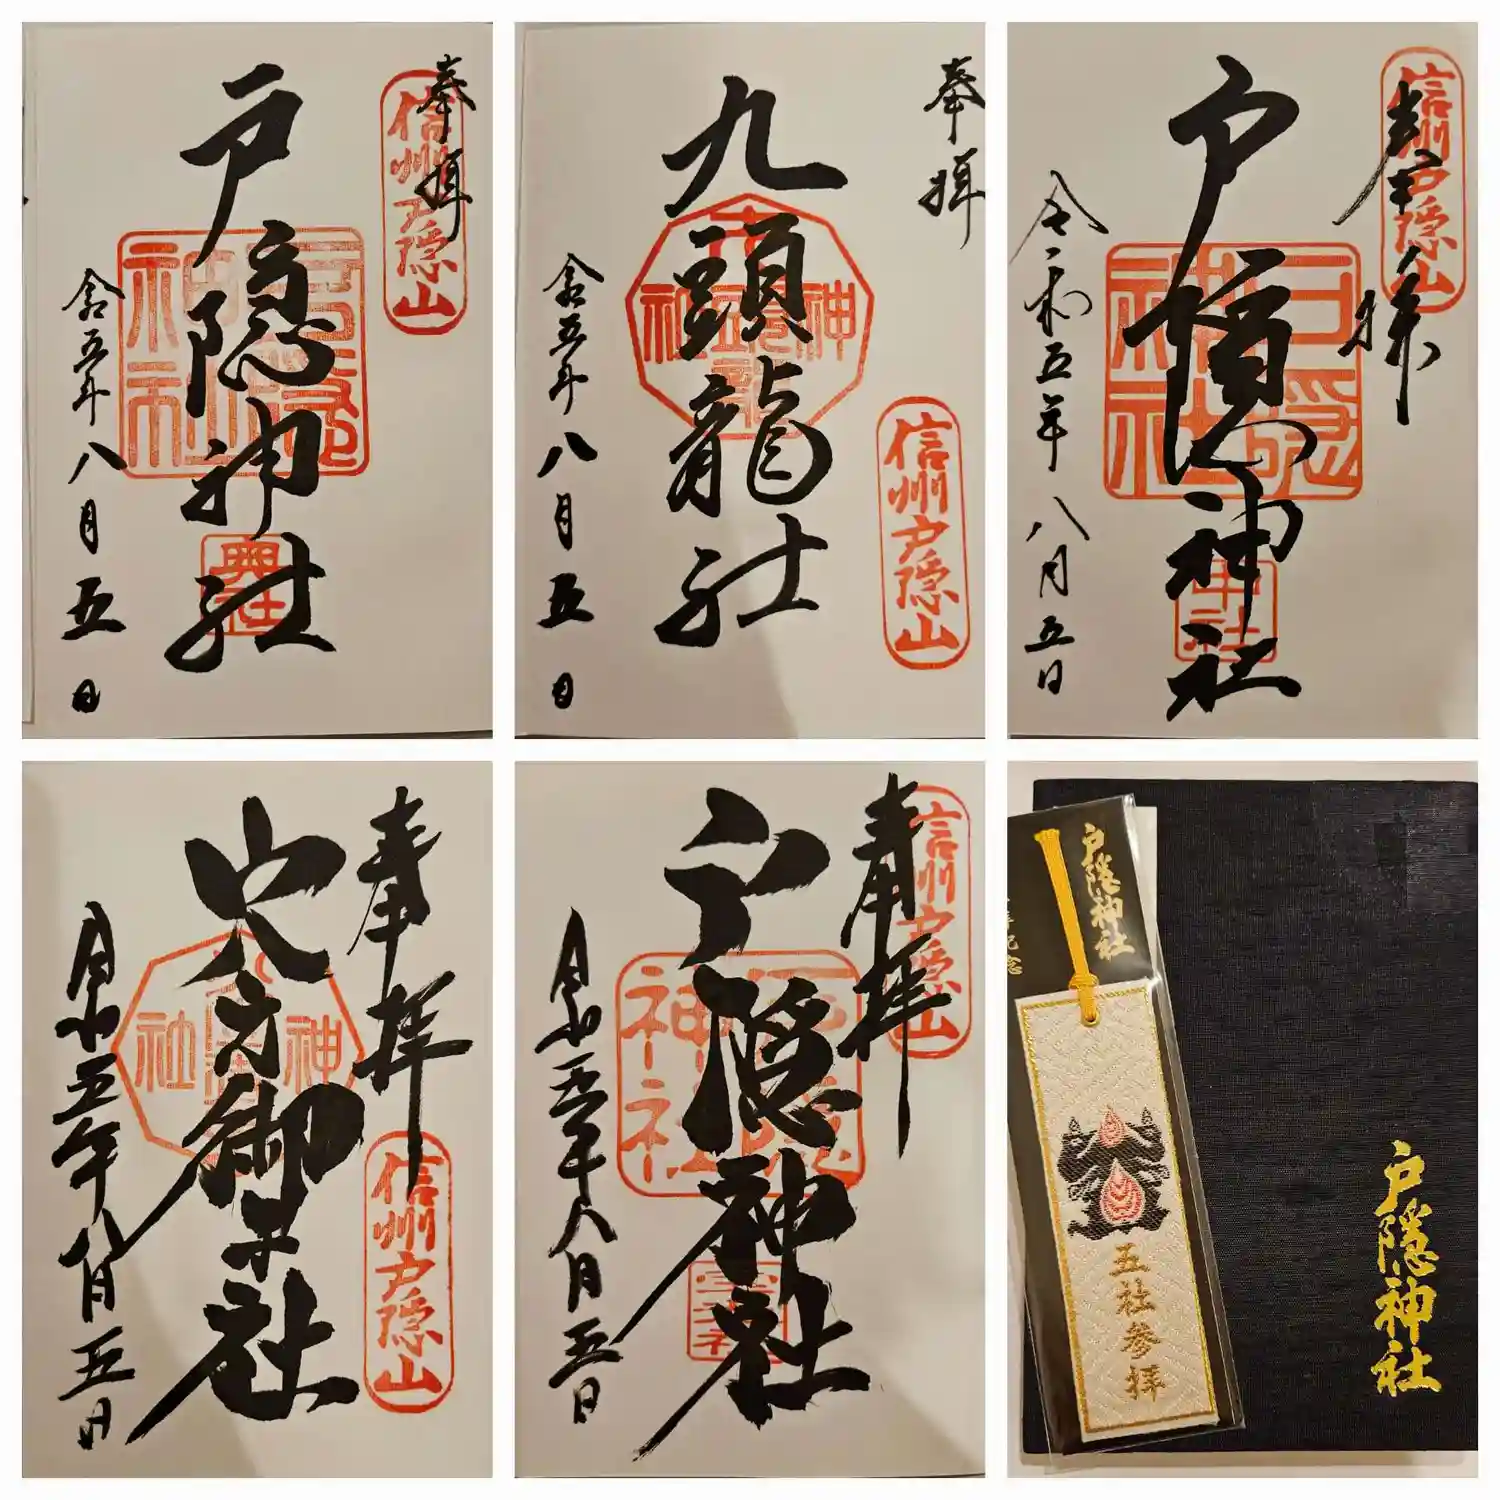 奉拝
信州戸隠山
戸隠神社
奥社
令和五年八月五日
奉拝
九頭龍社
信州戸隠山
令和五年八月五日
奉拝
信州戸隠山
戸隠神社
戸隠神社
中社
令和五年八月五日
奉拝
火之御子社
信州戸隠山
令和五年八月五日
奉拝
信州戸隠山
戸隠神社
戸隠神社
宝光社
令和五年八月五日
戸隠神社
五社参拝
戸隠神社